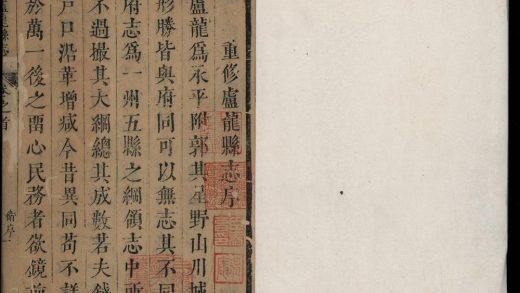 重修盧龍縣志序
盧龍爲永平附郭其星野山川城
形勝皆與府同可以無志其不同
府志爲一州五縣之綱領志中所
不過撮其大綱總其成數若夫錢
戶口沿革增减今昔異同苟不詳
於萬一後之畱心民務者欲鏡
縣志
卷之首
序一